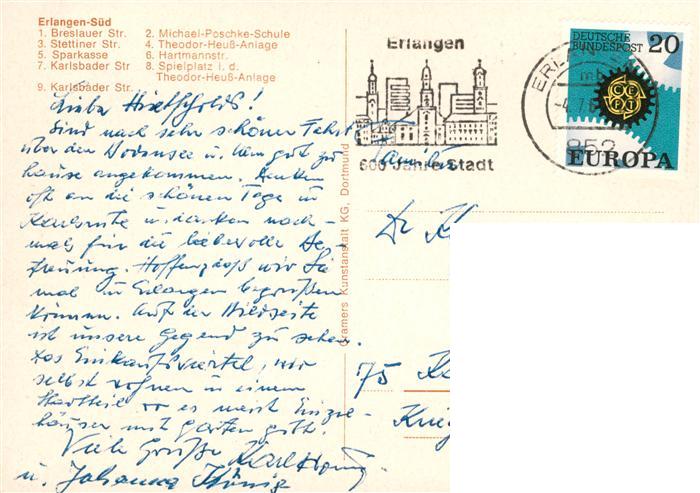 Erlangen-Süd
1. Breslauer Str. 2. Michael-Poschke-Schule
3. Stettiner Str. 4. Theodor-Heuß-Anlage
5. Sparkasse 6. Hartmannstr.
7. Karlsbader Str 8. Spielplatz i. d.
Theodor-Heuß-Anlage
9. Karlsbader Str.
Liebe
Sind nach sehr schöner Fahrt
über den Bodensee u. Ulm gut zu
hause angekommen. Denken
oft an die schönen Tage in
Karlsruhe u. danken noch-
mals für die liebevolle Be-
treuung. Hoffen, daß wir Sie
mal in Erlangen begrüßen
können. Auf der Bildseite
ist unsere Gegend zu sehen.
Das Einkaufsviertel, wir
selbst wohnen in einem
Stadtteil wo es meist Einzel-
häuser mit Garten gibt.
Viele Grüße Karl
u. Johanna König
Cramers Kunstanstalt KG, Dortmund
Erlangen
600 Jahre Stadt
ERLANGEN
mb
852
DEUTSCHE
BUNDESPOST 20
CEPT
EUROPA
Familie
Dr.
75